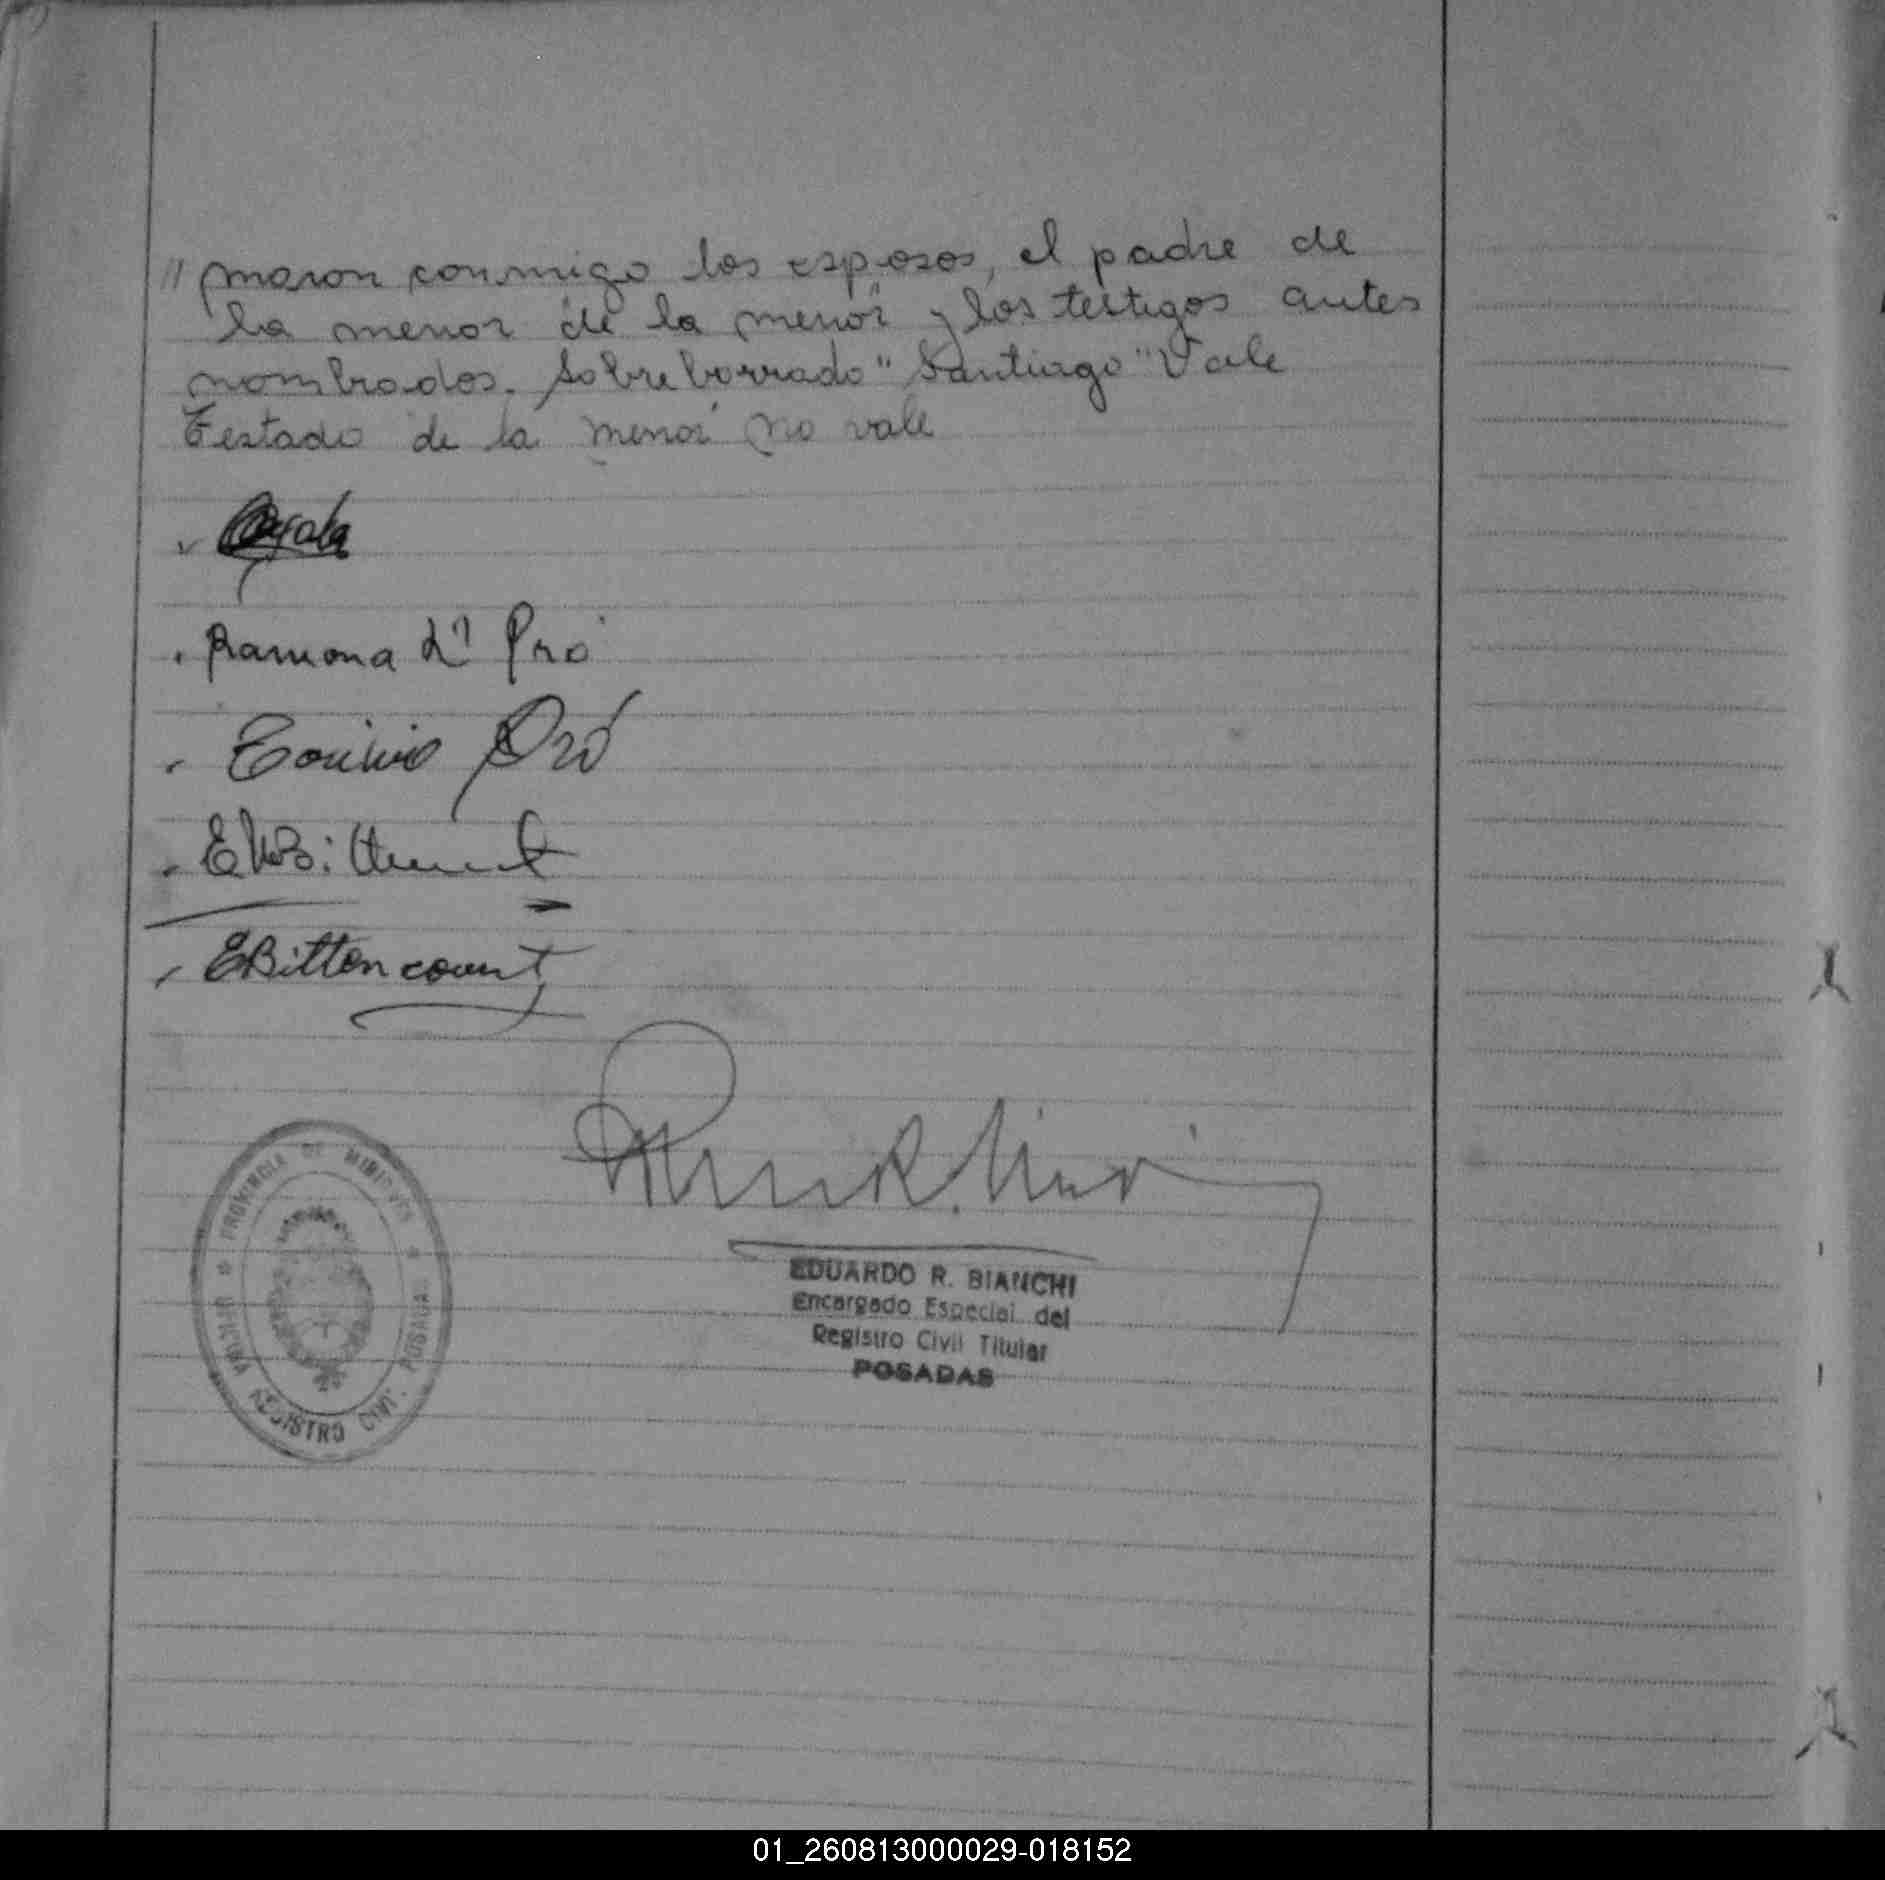 // maron conmigo los esposos, el padre de
la menor "de la menor" y los testigos antes
nombrados. Sobreborrado "Santiago" Vale
Testado de la menor no vale
Ramona Pro
Emilio Oró
EBittencourt
PROVINCIA DE MISIONES
REGISTRO CIVIL POSADAS
EDUARDO R. BIANCHI
Encargado Especial del
Registro Civil Titular
POSADAS
01_260813000029-018152